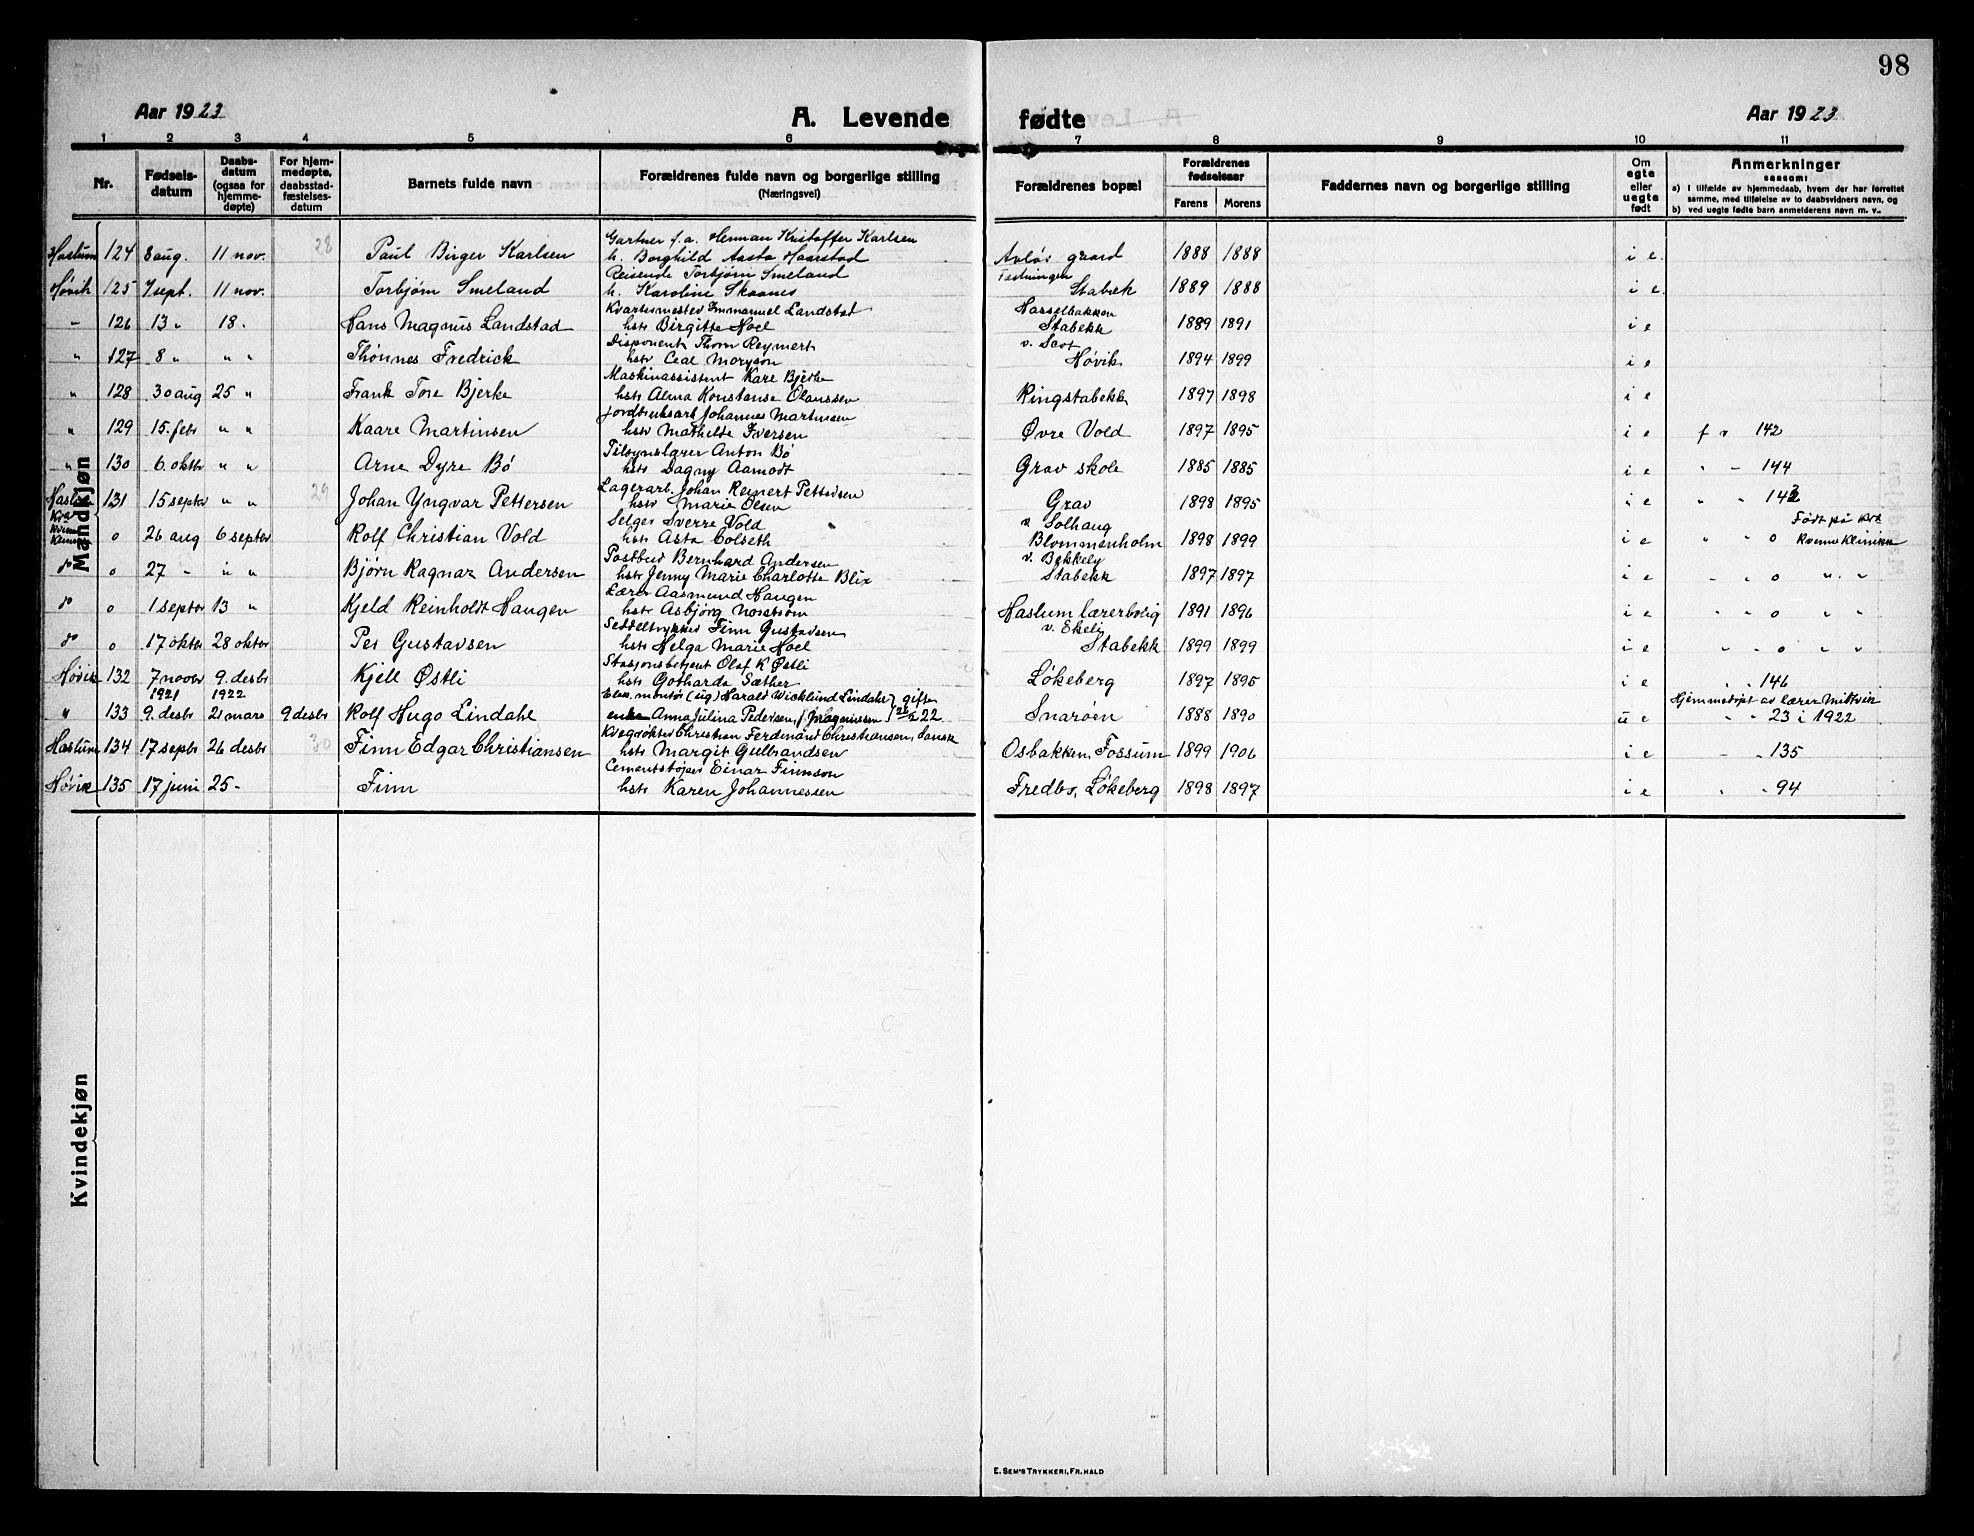 98
Aar 1923 A. Levende fødte Aar 1923
1 2 3 4 5 6 7 8 9 10 11
Nr. Fødsels-datum Daabs-datum (ogsaa for hjemme-døpte) For hjem-medøpte, daabsstad-fæstelses-datum Barnets fulde navn Forældrenes fulde navn og borgerlige stilling (Næringsvei) Forældrenes bopæl Forældrenes fødselsaar Farens Morens Faddernes navn og borgerlige stilling Om egte eller uegte født Anmerkninger saasom:
a) i tilfælde av hjemmedaab, hvem der har forrettet samme, med tilføielse av to daabsvidners navn, og
b) ved uegte fødte barn anmelderens navn m. v..
Mandkjøn
Gartner f.a. Herman Kristoffer Karlsen
Haslum 124 8 aug. 11 nov. 28 Paul Birger Karlsen h. Borghild Aasta Haarstad Avløs gaard 1888 1888 i e.
Reisende Torbjørn Smeland
Høvik 125 7 sept. 11 nov. Torbjørn Smeland h. Karoline Skaanes Stabæk 1889 1888 i e.
Kvartermester Immanuel Landstad Hasselbakken
" 126 13 " 18. Hans Magnus Landstad hstr Birgitte Hoel Stabekk 1889 1891 i e
Disponent Thom Reymert
" 127 8 " " " Thønnes Fredrick hstr Høvik 1894 1899 i e
Maskinassistent Kare Bjerke
" 128 30 aug 25 " Frank Tore Bjerke hstr Alma Konstanse Olaussen Ringstabekk 1897 1898 i e
Jordbruksarb Johannes Martinsen
" 129 15. febr " " Kaare Martinsen hstr Mathilde Iversen Øvre Vold 1897 1895 i e f n 142
Tilsynslærer Anton Bø
" 130 6. oktbr " " Arne Dyre Bø hstr Dagny Aamodt Grav skole 1885 1885 i e " - 144
Lagerarb. Johan Reinert Pettersen
Haslum 131 15 septbr " " 29 Johan Yngvar Pettersen hstr Marie Olsen Grav 1898 1895 i e " "
Selger Sverre Vold v. Solhaug Født på
o 26 aug 6 septbr Rolf Christian Vold hstr Asta Colseth Blommenholm 1898 1899 i e " " o Kvinneklinikk
Postbud Bernhard Andersen v. Bekkely
do o 27 - " " Bjørn Ragnar Andersen hstr Jenny Marie Charlotte Blix Stabekk 1897 1897 i e - " o " "
Lærer Aasmund Haugen
do o 1 septbr 13 " Kjeld Reinholdt Haugen hstr Asbjørg Norstrøm Haslum lærerbolig 1891 1896 i e " " o " "
Seddeltrykker Finn Gustavsen v. Ekeli
do o 17 oktbr 28 oktbr Per Gustavsen hstr Helga Marie Hoel Stabekk 1899 1899 i e " " o " "
Stasjonsbetjent Olaf K Østli
Høvik 132 7 novbr 9. desbr Kjell Østli hstr Gotharda Sæther Løkeberg 1897 1895 i e " " 146
1921 1922 Elek. montør (ug) Harald Wicklund Lindahl gifter Hjemmedøpt av lærer
" 133 9. desbr 21 mars 9 desbr Rolf Hugo Lindahl enke Anna Julina Pedersen, f. Magnussen 22 Snarøen 1888 1890 u e " " 23 i 1922
Kvegrøkter Christian Ferdinand Christiansen, dansk
Haslum 134 17 septbr 26 desbr 30 Finn Edgar Christiansen hstr Margit Gulbrandsen Osbakken, Fossum 1899 1906 i e - " 135
Cementstøper Einar Finnson
Høvik 135 17 juni 25 - Finn hstr Karen Johannessen Fredbo, Løkeberg 1898 1897 i e " " 94
Kvindekjøn
E. SEM'S TRYKKERI, FR.HALD